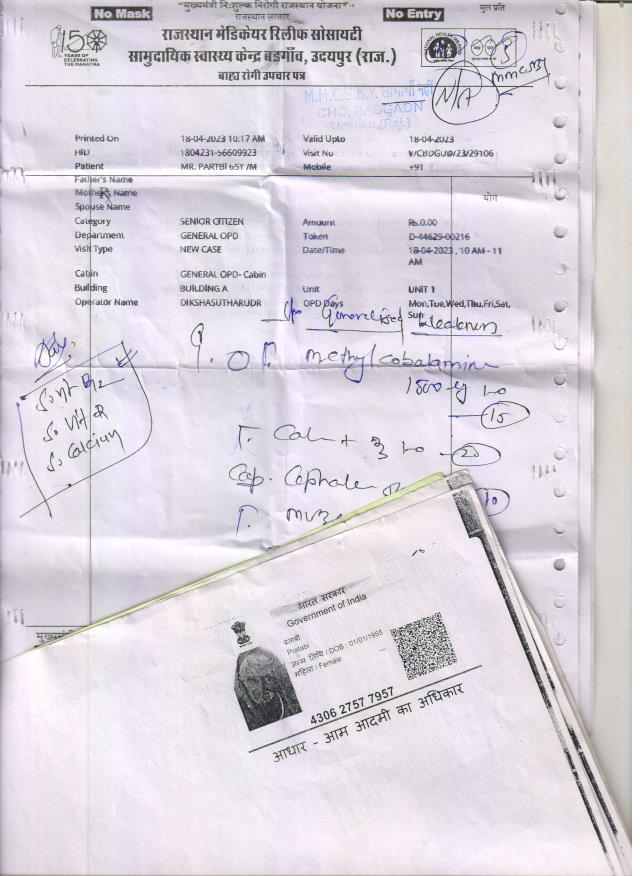 "मुख्यमंत्री नि:शुल्क निरोगी राजस्थान योजना"
No Mask
राजस्थान सरकार
No Entry
मुल प्रति
राजस्थान मेडिकेयर रिलीफ सोसायटी
सामुदायिक स्वास्थ्य केन्द्र बडगाँव, उदयपुर (राज.)
बाह्य रोगी उपचार पत्र
150
YEARS OF
CELEBRATING
THE MAHATMA
N/A
CHC, BADGAON
Printed On 18-04-2023 10:17 AM Valid Upto 18-04-2023
HID 1804231-56609923 Visit No V/CBDGUD/23/29106
Patient MR. PARTBI 65Y /M Mobile +91
Father's Name
Mother's Name योग
Spouse Name
Category SENIOR CITIZEN Amount Rs.0.00
Department GENERAL OPD Token D-44629-00216
Visit Type NEW CASE Date/Time 18-04-2023 , 10 AM - 11
AM
Cabin GENERAL OPD- Cabin
Building BUILDING A Unit UNIT 1
Operator Name DIKSHASUTHARUDR OPD Days Mon,Tue,Wed,Thu,Fri,Sat,
Sun
Generalised weakness
methylcobalamine
1500
15
S. Vit B12
S. Calcium
20
Cap.
10
भारत सरकार
Government of India
प्रताबी
Pratabi
जन्म तिथि / DOB : 01/01/1955
महिला / Female
4306 2757 7957
आधार - आम आदमी का अधिकार